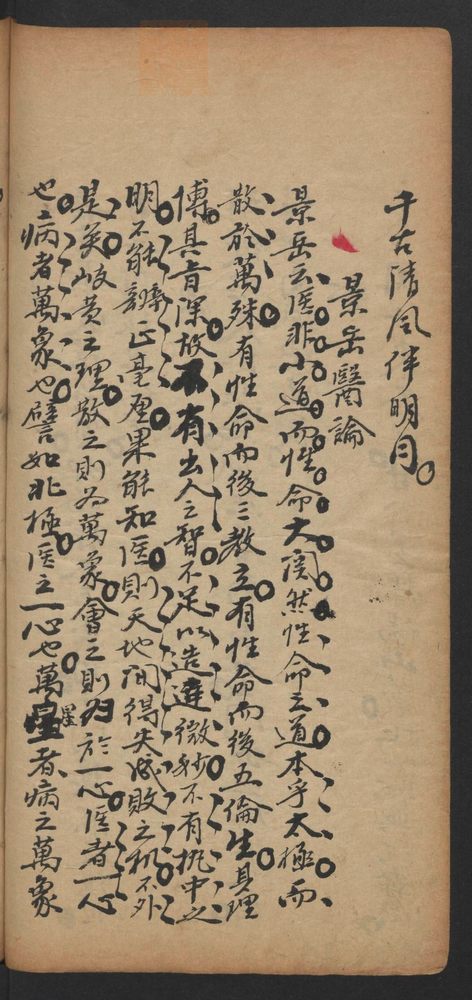 千古清风伴明月
景岳醫論
景岳云医非小道而性命大関然性命之道本乎太極而
散於萬殊有性命而後三教立有性命而後五倫生其理
博其旨深故不有出人之智不足以造達微妙不有执中之
明不能辨正毫厘果能知医则天地间得失成敗之机不外
是矣岐黄之理散之則為萬象會之則归於一心医者一心
也病者萬象也譬如北極医之一心也萬星者病之萬象